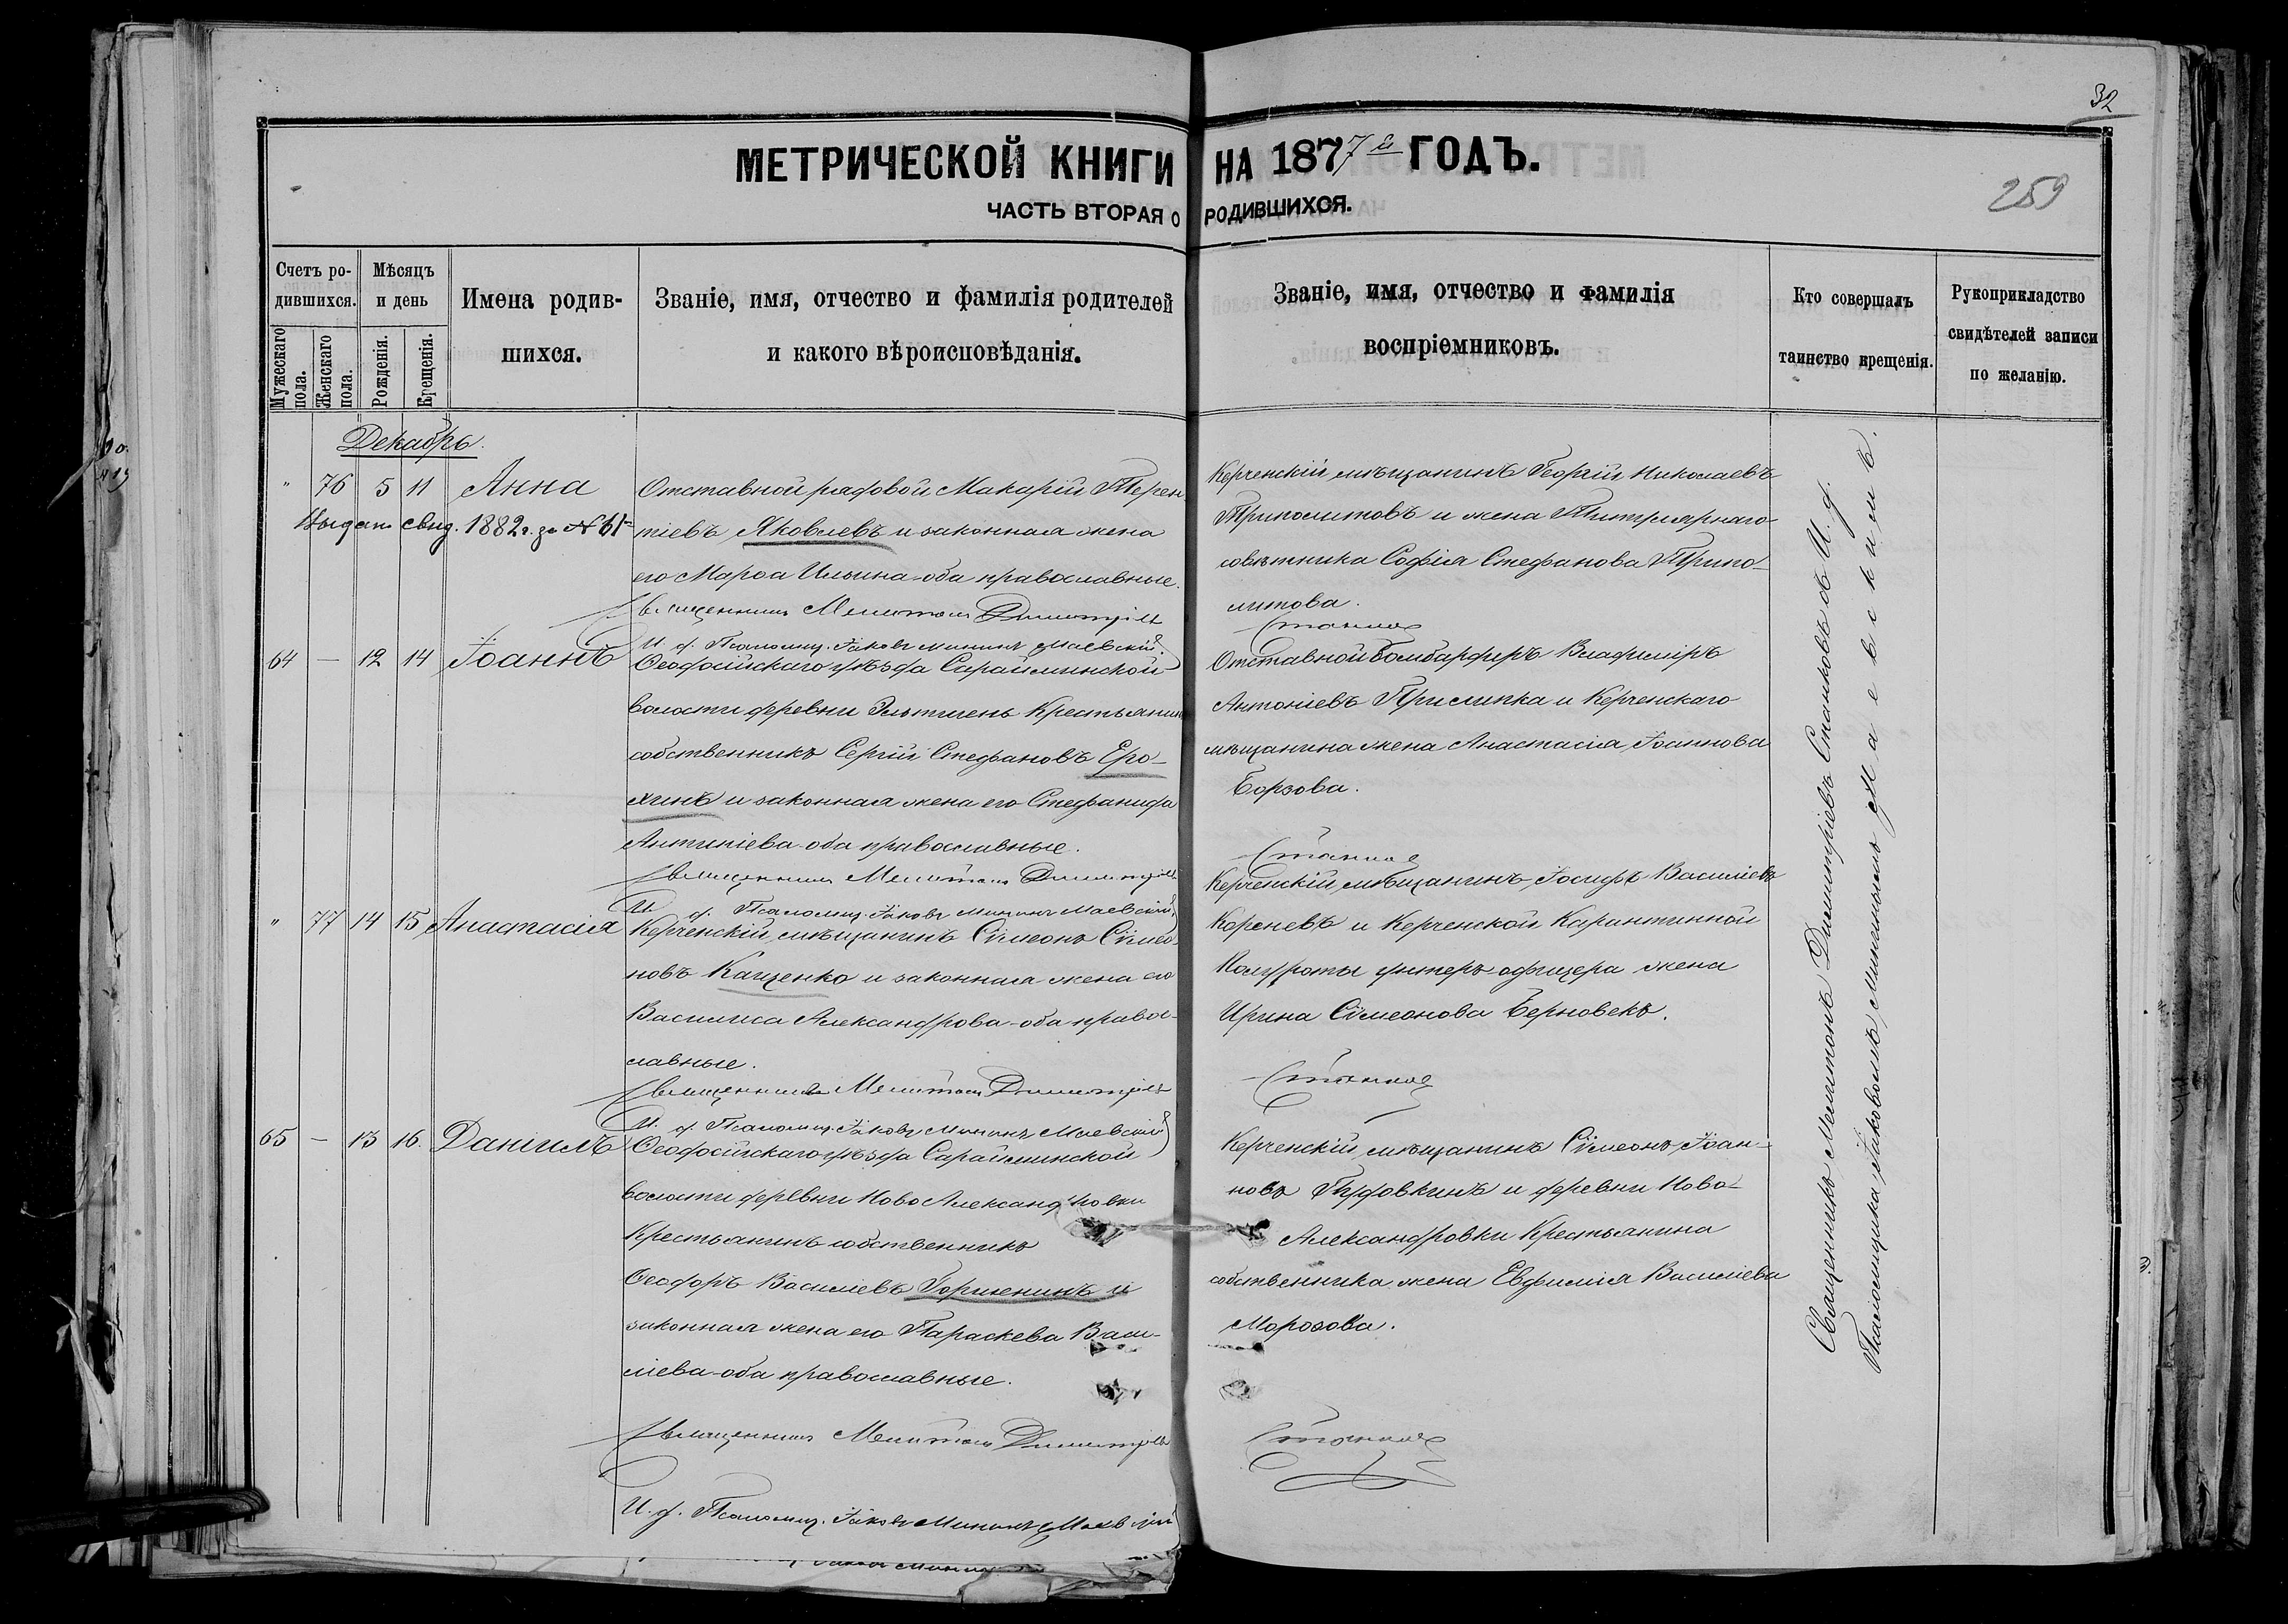 32
259
МЕТРИЧЕСКОЙ КНИГИ НА 1877й ГОДЪ.
ЧАСТЬ ВТОРАЯ О РОДИВШИХСЯ.
Счетъ ро-
дившихся.
Мужескаго пола.
Женскаго пола.
Мѣсяцъ
и день
Рожденія.
Крещенія.
Имена родив-
шихся.
Званіе, имя, отчество и фамилія родителей
и какого вѣроисповѣданія.
Званіе, имя, отчество и фамилія
воспріемниковъ.
Кто совершалъ
таинство крещенія.
Рукоприкладство
свидѣтелей записи
по желанію.
Декабрь.
" 76 5 11 Анна
Выдано свид. 1882 г. за № 61
Отставной рядовой Макарій Терен-
тіевъ Яковлевъ и законная жена
его Марѳа Ильина оба православные.
Священникъ Мелитонъ Димитріевъ
И. д. Псаломщ. Іаковъ Мининъ Маевскій
Керченскій мѣщанинъ Георгій Николаевъ
Триполитовъ и жена Титулярнаго
совѣтника Софія Стефанова Трипо-
литова.
Станковъ
64 — 12 14 Іоаннъ
Ѳеодосійскаго уѣзда Сарайминской
волости деревни Эльтигень Крестьянинъ
собственникъ Сергій Стефановъ Еро-
хинъ и законная жена его Стефанида
Антипіева оба православные.
Священникъ Мелитонъ Димитріевъ
И. д. Псаломщ. Іаковъ Мининъ Маевскій
Отставной бомбардиръ Владиміръ
Антоніевъ Прислипка и Керченскаго
мѣщанина жена Анастасія Іоаннова
Борзова.
Станковъ
" 77 14 15 Анастасія
Керченскій мѣщанинъ Сѵмеонъ Сѵмео-
новъ Кащенко и законная жена его
Василиса Александрова оба право-
славные.
Священникъ Мелитонъ Димитріевъ
И. д. Псаломщ. Іаковъ Мининъ Маевскій
Керченскій мѣщанинъ Іосифъ Василіевъ
Кореневъ и Керченской Карантинной
Полуроты унтеръ офицера жена
Ирина Сѵмеонова Берновекъ.
Станковъ
65 — 13 16. Даніилъ
Ѳеодосійскаго уѣзда Сарайминской
волости деревни Ново Александровки
Крестьянинъ собственникъ
Ѳеодоръ Василіевъ Горшенинъ и
законная жена его Параскева Васи-
ліева оба православные.
Священникъ Мелитонъ Димитріевъ
И. д. Псаломщ. Іаковъ Мининъ Маевскій
Керченскій мѣщанинъ Сѵмеонъ Іоан-
новъ Пудовкинъ и деревни Ново-
Александровки Крестьянина
собственника жена Евфимія Василіева
Морозова.
Станковъ
Священникъ Мелитонъ Димитріевъ Станковъ съ И. д.
Псаломщика Іаковомъ Мининымъ Маевскимъ.